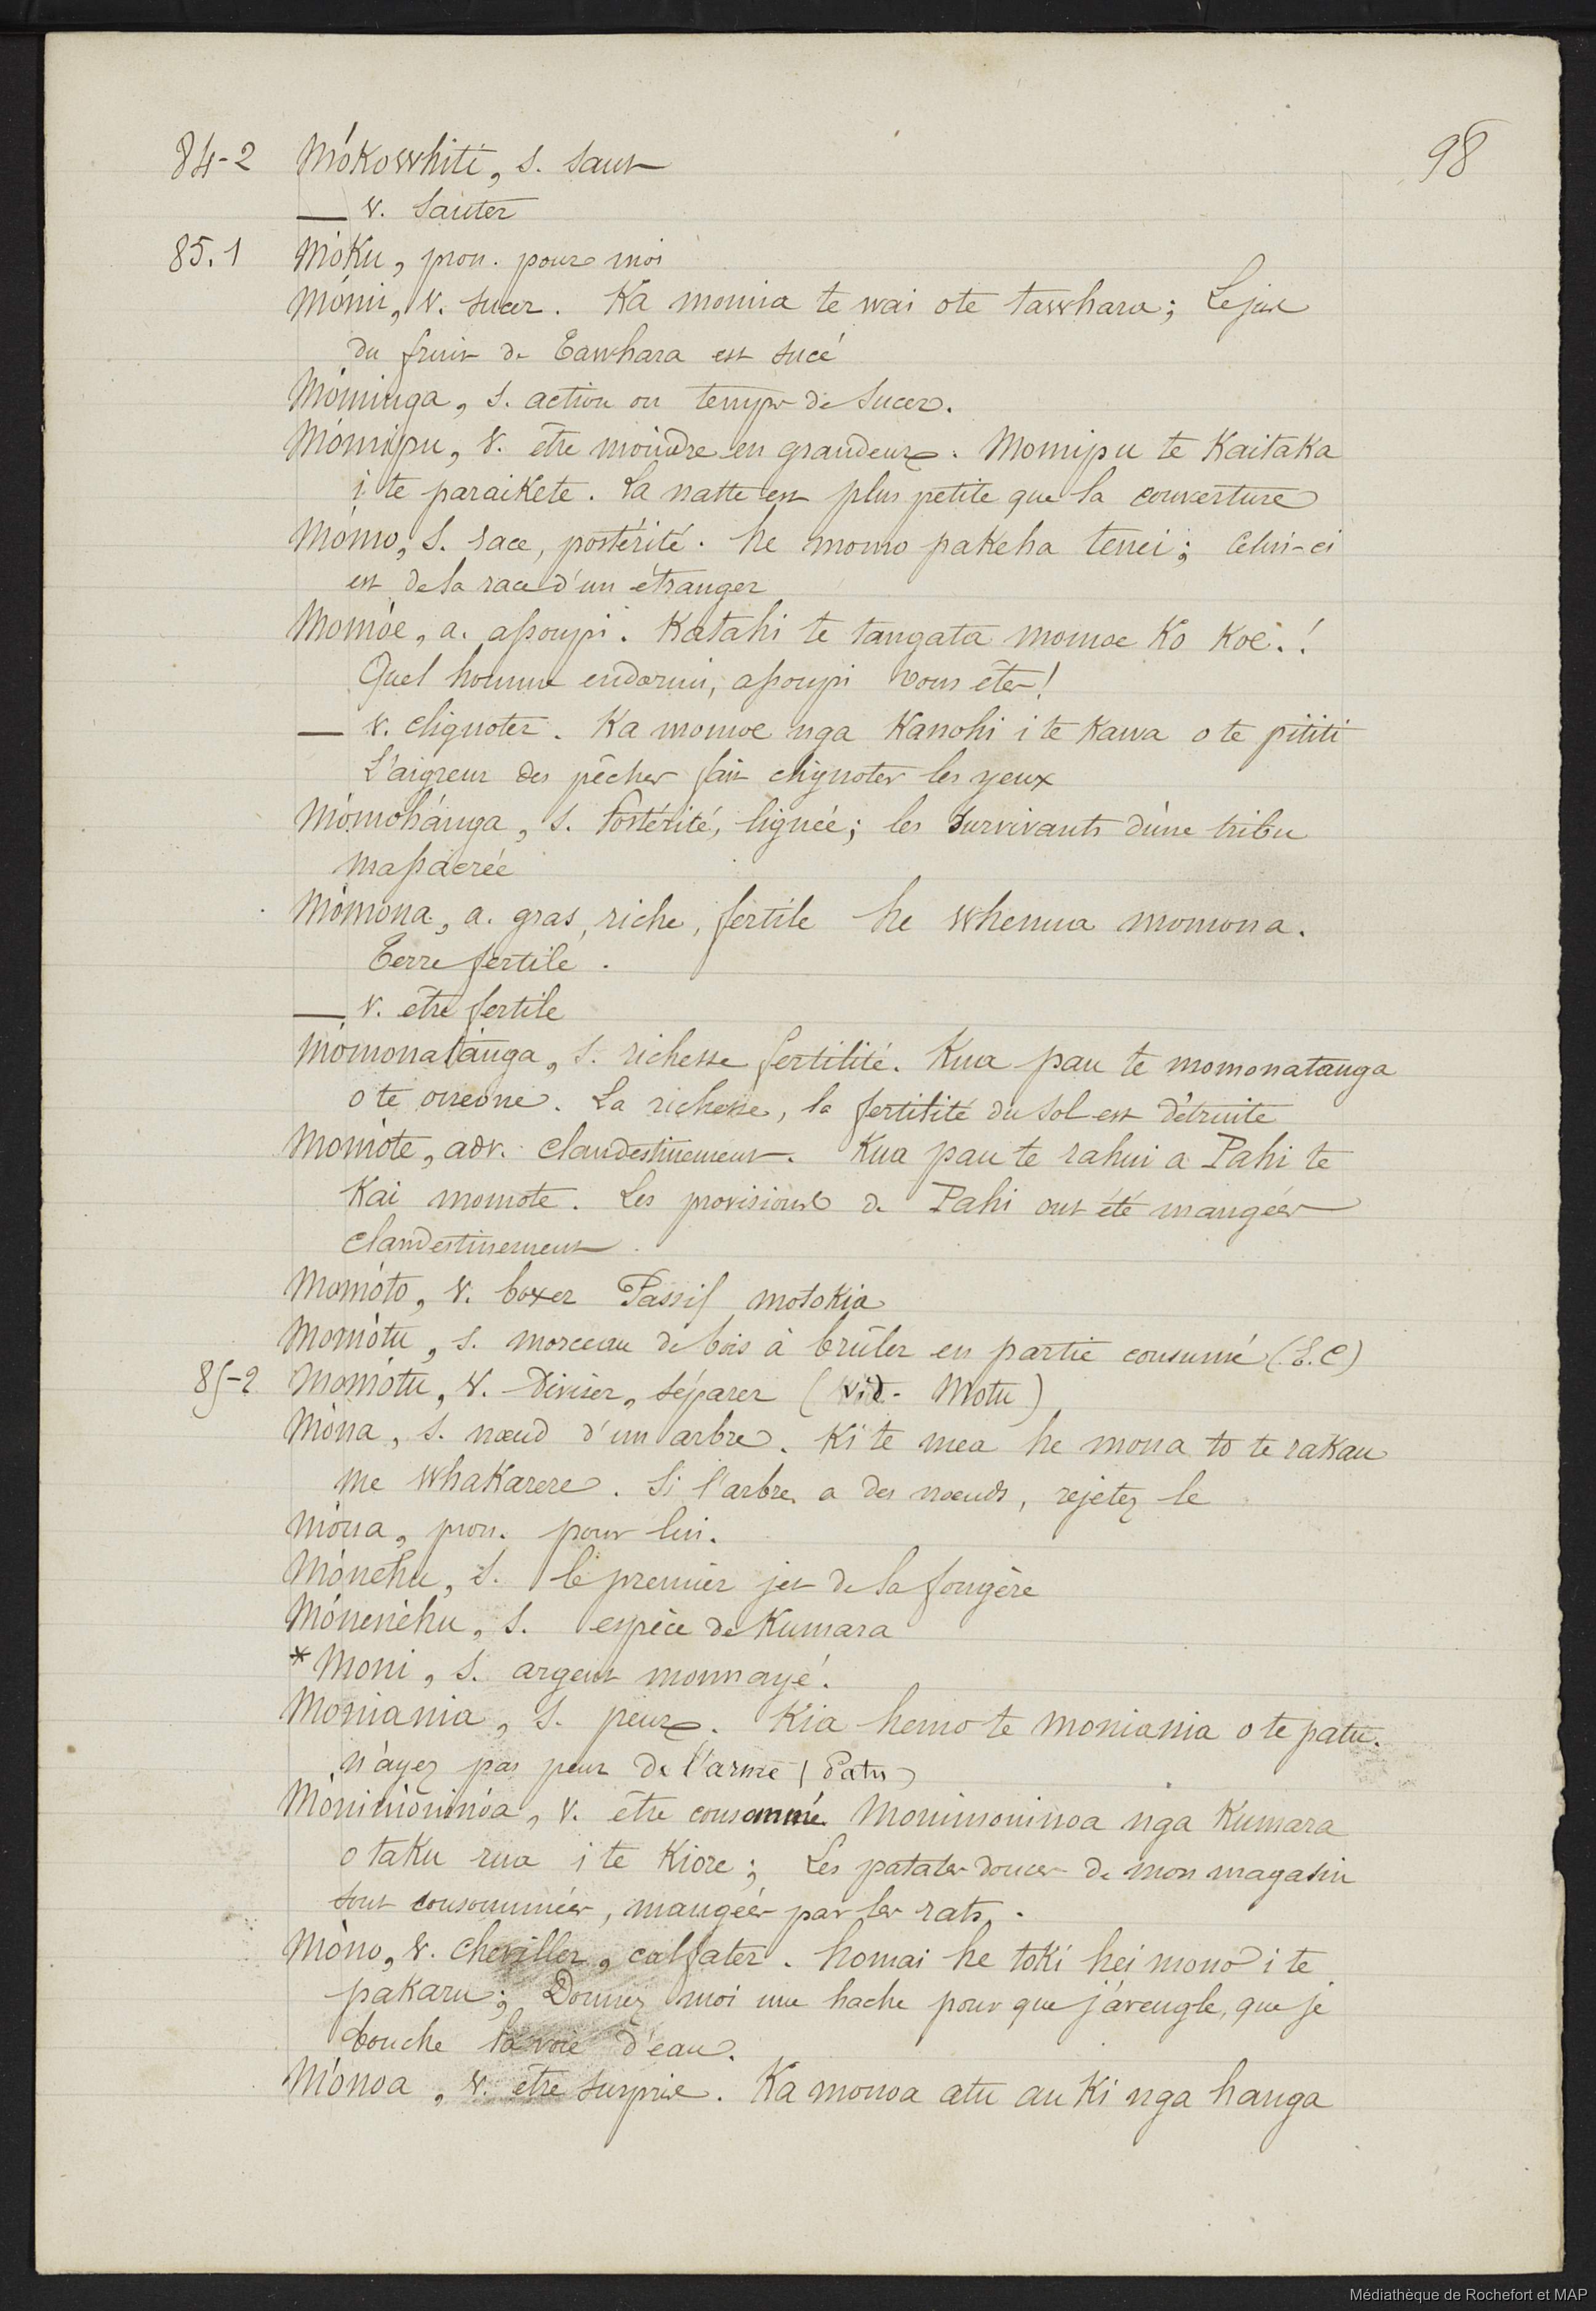 98
84-2 Mókowhiti, s. saut
— v. sauter
85.1 Móku, pron. pour moi
Mómi, v. sucer. Ka momia te wai ote tawhara; Le jus
du fruit de Tawhara est sucé
Móminga, s. action ou temps de sucer.
Mómipu, v. être moindre en grandeur. Momipu te Kaitaka
i te paraikete. La natte est plus petite que la couverture
Mómo, s. race, postérité. he momo pakeha tenei; Celui-ci
est de la race d'un étranger
Momóe, a. assoupi. Katahi te tangata momoe Ko Koe.!
Quel homme endormi, assoupi vous êtes!
— v. clignoter. Ka momoe nga Kanohi i te Kawa o te pititi
L'aigreur des pêches fait clignoter les yeux
Mómohánga, s. Postérité, lignée; les survivants d'une tribu
massacrée
Mómona, a. gras, riche, fertile he whenua momona.
Terre fertile.
— v. être fertile
Mómonatánga, s. richesse fertilité. Kua pau te momonatanga
o te oneone. La richesse, la fertilité du sol est détruite
Momóte, adv. clandestinement. Kua pau te rahui a Pahi te
Kai momote. Les provisions de Pahi ont été mangées
clandestinement.
Momóto, v. boxer Passif motokia
Momótu, s. morceau de bois à brûler en partie consumé (E.C)
85-2 Momótu, v. Diviser, séparer (vid. Motu)
Móna, s. nœud d'un arbre. Ki te mea he mona to te rakau
me whakarere. Si l'arbre a des nœuds, rejetez le
Móna, pron. pour lui.
Mónehu, s. le premier jet de la fougère
Mónenéhu, s. espèce de Kumara
* Moni, s. argent monnayé.
Moniania, s. peur. Kia hemo te moniania o te patu.
n'ayez pas peur de l'arme (Patu)
Mónimóninóa, v. être consommé. Monimoninoa nga Kumara
o taku rua i te Kiore; Les patates douces de mon magasin
sont consommées, mangées par les rats.
Móno, v. cheviller, calfater. homai he toki hei mono i te
pakaru; Donnez moi une hache pour que j'aveugle, que je
bouche la voie d'eau.
Mónoa, v. être surpris. Ka monoa atu au Ki nga hanga
Médiathèque de Rochefort et MAP